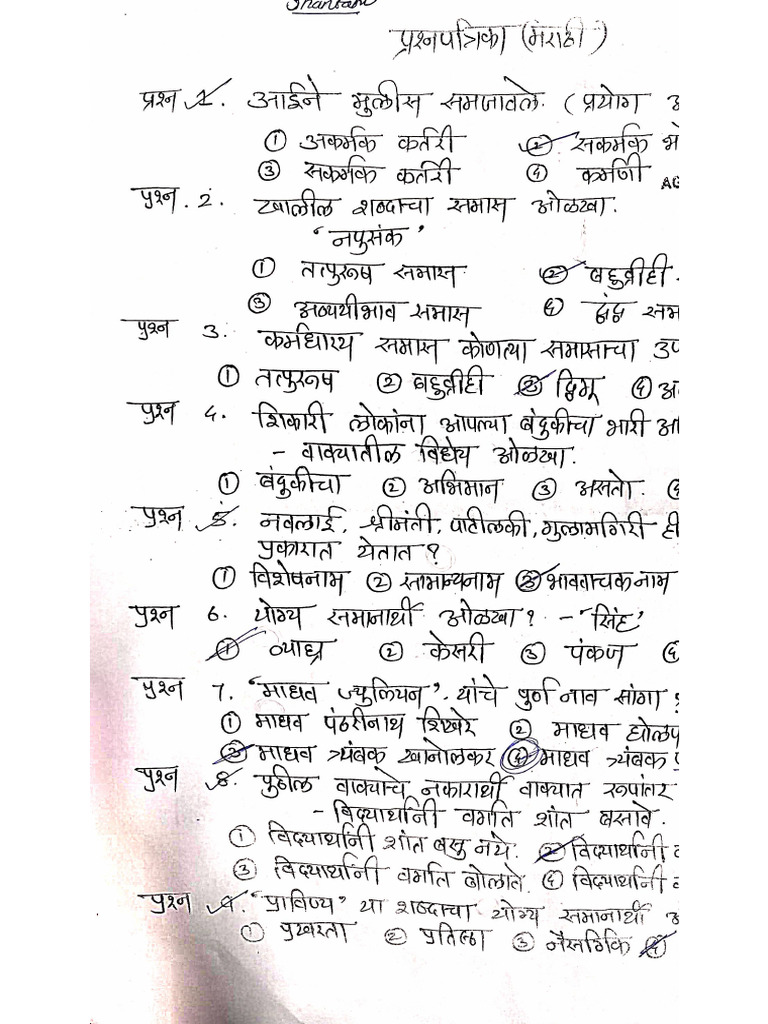 प्रश्नपत्रिका (मराठी)
प्रश्न 1. आईने मुलीस समजावले. (प्रयोग
① अकर्मक कर्तरी ② सकर्मक
③ सकर्मक कर्तरी ④ कर्मणी
प्रश्न. 2. खालील शब्दाचा समास ओळखा.
'नपुसंक'
① तत्पुरूष समास ② बहुव्रीही
③ अव्ययीभाव समास ④ द्वंद्व सम
प्रश्न 3. कर्मधारय समास कोणत्या समासाचा उप
① तत्पुरूष ② बहुव्रीही ③ द्विगू ④ अ
प्रश्न 4. शिकारी लोकांना आपल्या बंदुकीचा भारी अ
- वाक्यातील विधेय ओळखा.
① बंदुकीचा ② अभिमान ③ असतो. ④
प्रश्न 5. नवलाई, श्रीमंती, पाटीलकी, गुलामगिरी ही
प्रकारात येतात ?
① विशेषनाम ② सामान्यनाम ③ भाववाचकनाम
प्रश्न 6. योग्य समानार्थी ओळखा ? - 'सिंह'
① व्याघ्र ② केसरी ③ पंकज ④
प्रश्न 7. "माधव ज्युलियन". यांचे पुर्ण नाव सांगा ?
① माधव पंढरीनाथ शिखरे ② माधव घोलप
③ माधव त्र्यंबक खानोलकर ④ माधव त्र्यंबक
प्रश्न 8. पुढील वाक्याचे नकारार्थी वाक्यात रूपांतर
- विद्यार्थांनी वर्गात शांत बसावे.
① विद्यार्थांनी शांत बसु नये. ② विद्यार्थांनी
③ विद्यार्थांनी वर्गात बोलाते. ④ विद्यार्थांनी
प्रश्न 9. "प्राविण्य" या शब्दाचा योग्य समानार्थी
① प्रखरता ② प्रतिष्ठा ③ नैसर्गिक ④